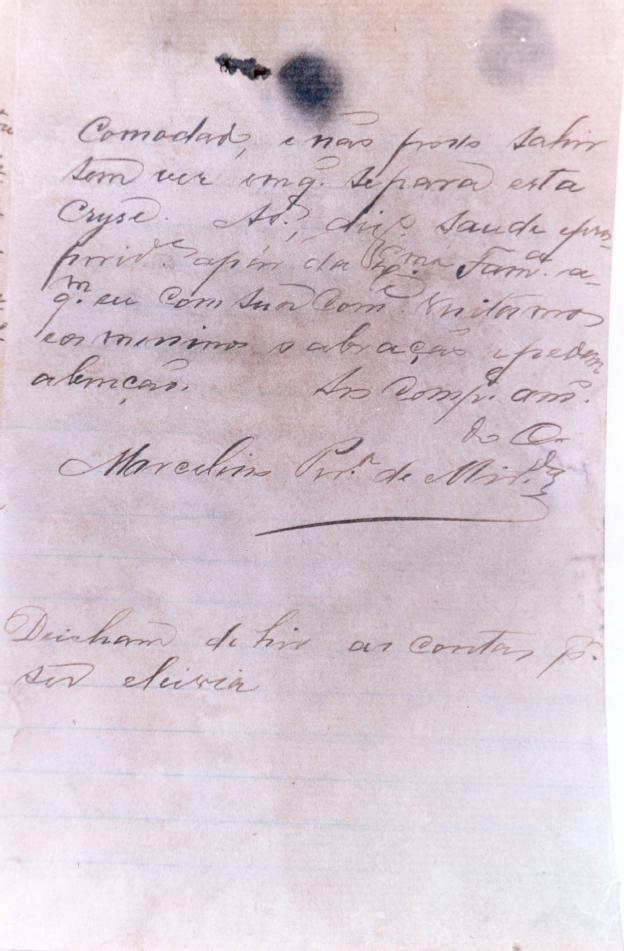 Comodad, e não poso sahir
sem ver em q. se para esta
cryse. Ad.s, dez.o saude e pros
perid.e apár da Ex.ma Fam.a a-
q.m eu com sua Com.e vizitamos
e os meninos o abração e pedem
abenção. Seo Comp.e am.o
do C.
Marcelino Per.a de Mir.da
Deicham de hir as contas p.
ser